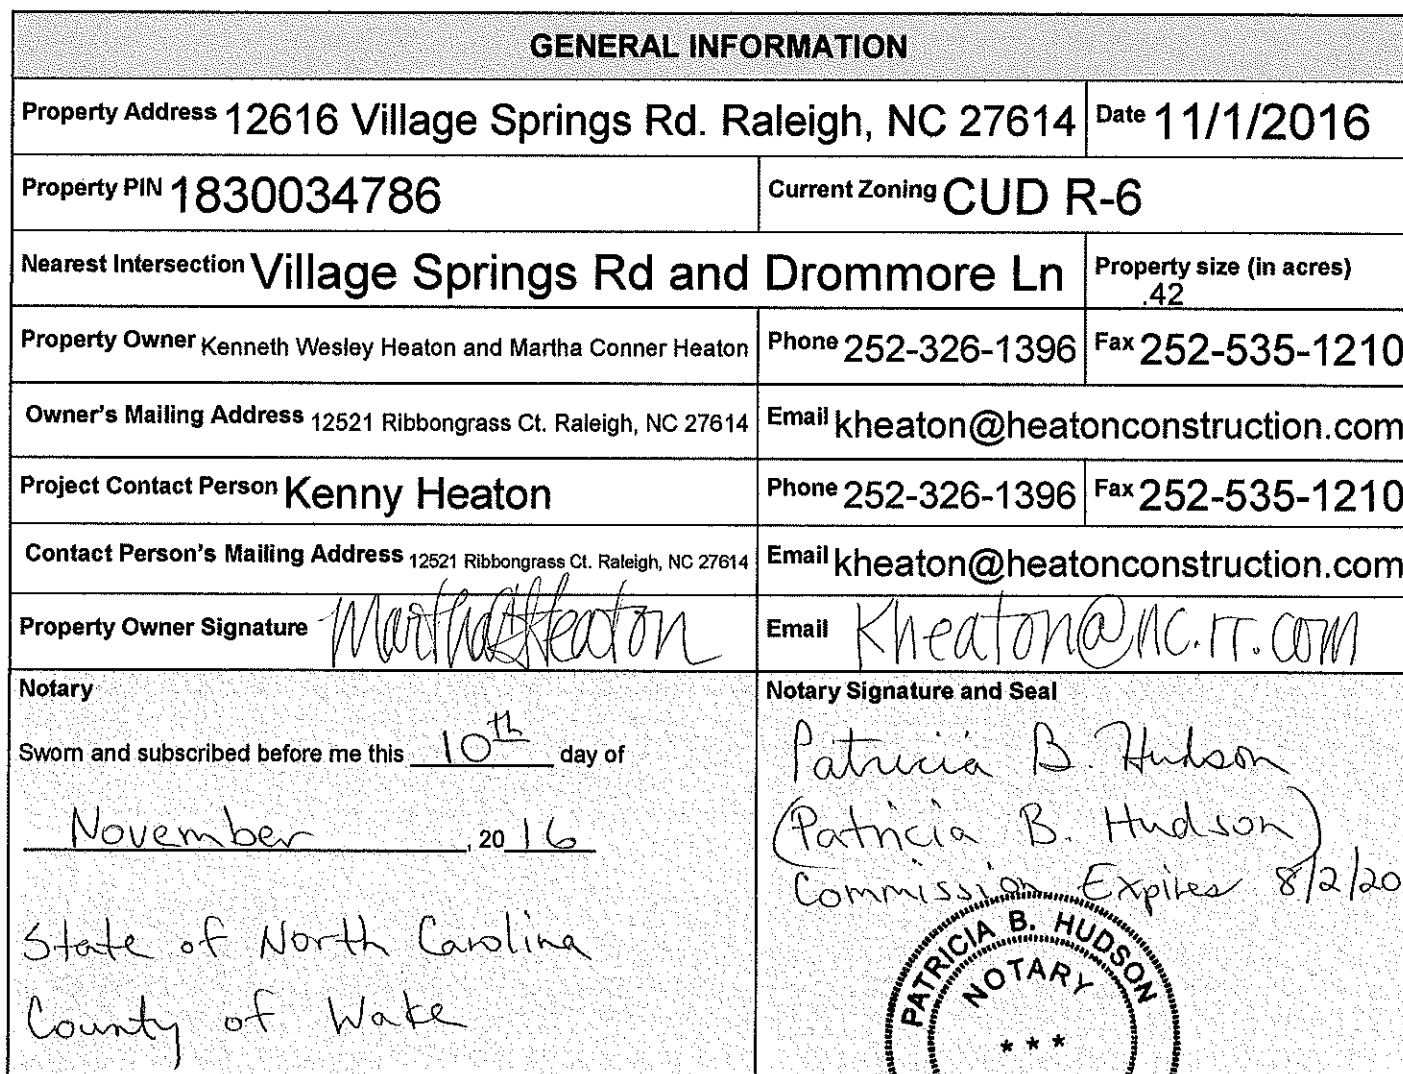 GENERAL INFORMATION
Property Address 12616 Village Springs Rd. Raleigh, NC 27614 Date 11/1/2016
Property PIN 1830034786 Current Zoning CUD R-6
Nearest Intersection Village Springs Rd and Drommore Ln Property size (in acres)
.42
Property Owner Kenneth Wesley Heaton and Martha Conner Heaton Phone 252-326-1396 Fax 252-535-1210
Owner's Mailing Address 12521 Ribbongrass Ct. Raleigh, NC 27614 Email kheaton@heatonconstruction.com
Project Contact Person Kenny Heaton Phone 252-326-1396 Fax 252-535-1210
Contact Person's Mailing Address 12521 Ribbongrass Ct. Raleigh, NC 27614 Email kheaton@heatonconstruction.com
Property Owner Signature Martha Heaton Email Kheaton@nc.rr.com
Notary
Sworn and subscribed before me this 10th day of
November, 2016
State of North Carolina
County of Wake
Notary Signature and Seal
Patricia B. Hudson
(Patricia B. Hudson)
Commission Expires 8/2/20
PATRICIA B. HUDSON
NOTARY
***